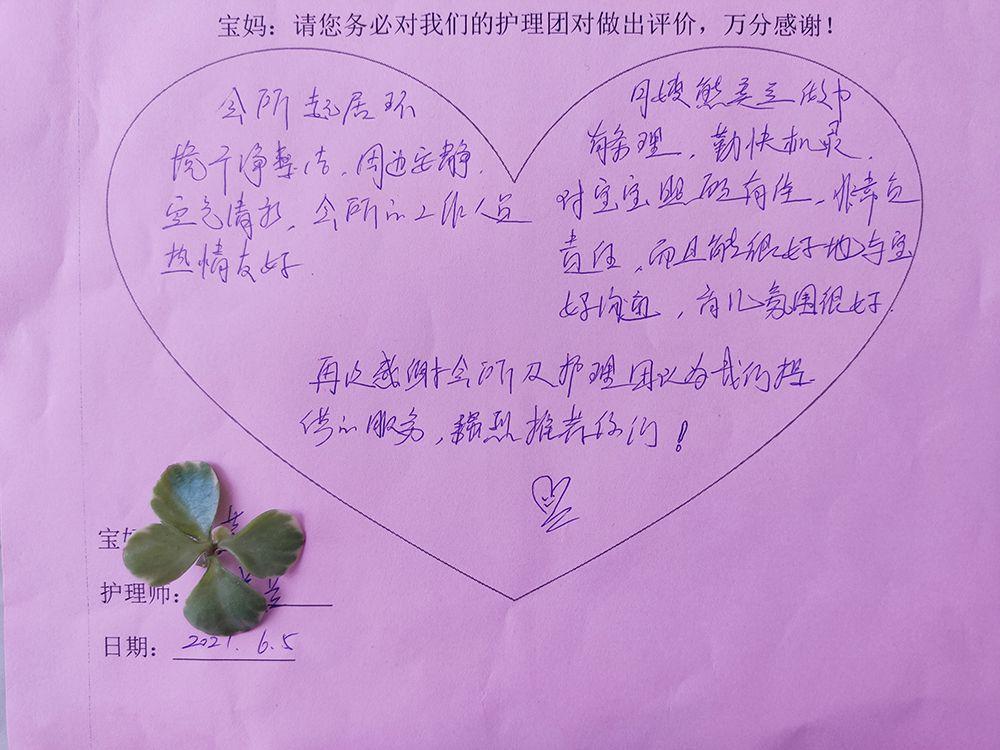 宝妈：请您务必对我们的护理团对做出评价，万分感谢！
会所起居环
境干净整洁，周边安静，
空气清新，会所的工作人员
热情友好．
月嫂熊美兰做事
有条理，勤快机灵，
对宝宝照顾有佳，非常负
责任，而且能很好地与宝
妈沟通，育儿氛围很好．
再次感谢会所及护理团队为我们提
供的服务，强烈推荐你们！
宝
护理师： 兰
日期：2021.6.5